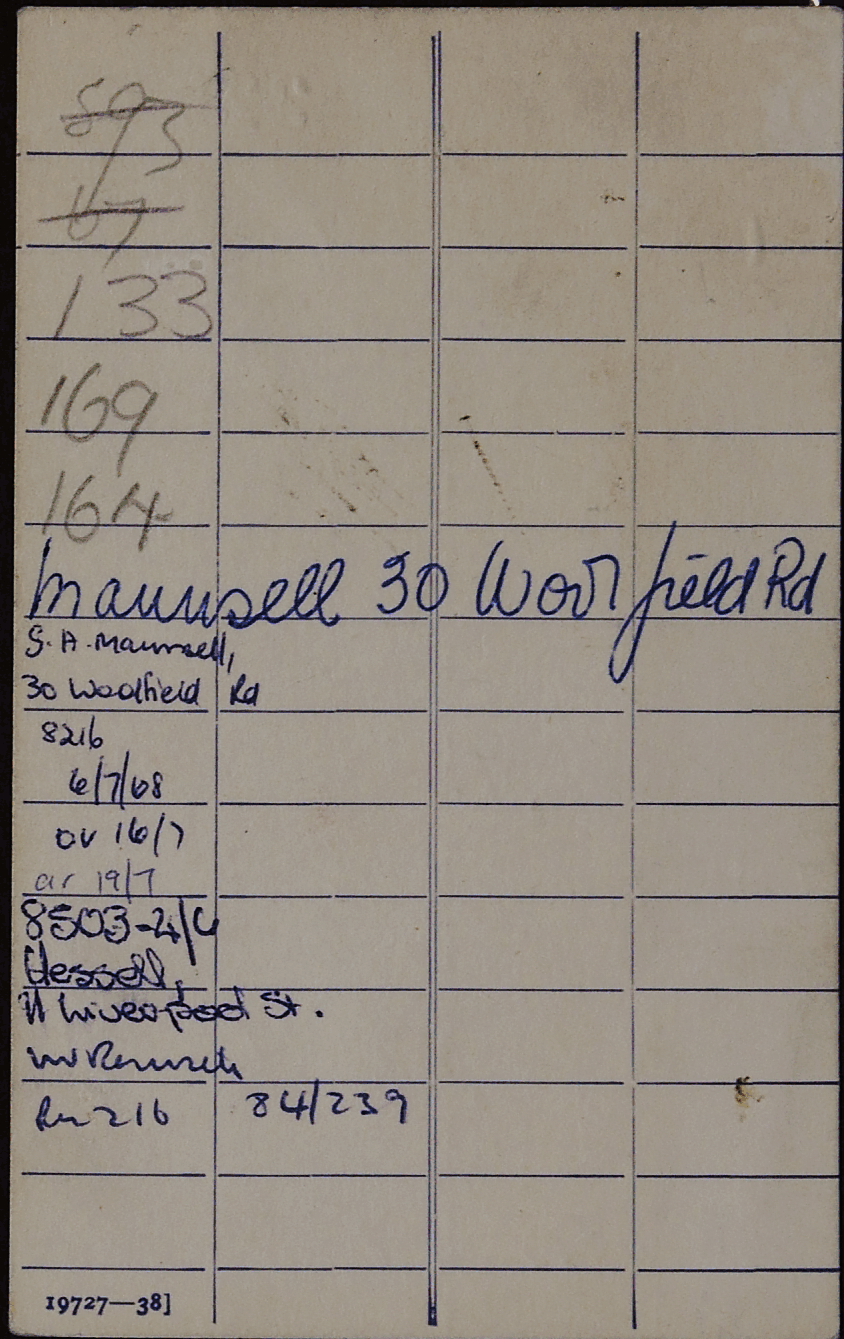 593
67
133
169
164
Maunsell 30 Woodfield Rd
G. A. Maunsell,
30 Woodfield Rd
8216
6/7/68
ov 16/7
ar 19/7
8503-4/C
Hessell,
11 Liverpool St.
216 84/239
19727—38]